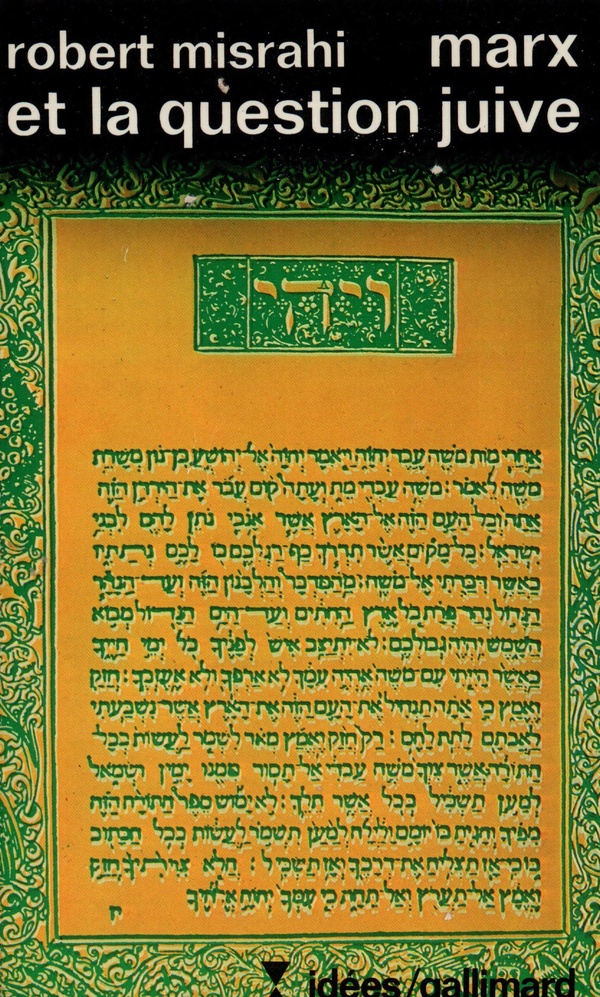 robert misrahi marx
et la question juive
ויהי
אחרי מות משה עבד יהוה ויאמר יהוה אל יהושע בן נון משרת
משה לאמר : משה עבדי מת ועתה קום עבר את הירדן הזה
אתה וכל העם הזה אל הארץ אשר אנכי נתן להם לבני
ישראל : כל מקום אשר תדרך כף רגלכם בו לכם
כאשר דברתי אל משה : מהמדבר והלבנון הזה ועד הנהר
הגדול נהר פרת כל ארץ החתים ועד הים הגדול מבוא
השמש יהיה גבולכם : לא יתיצב איש לפניך כל ימי חייך
כאשר הייתי עם משה אהיה עמך לא ארפך ולא אעזבך : חזק
ואמץ כי אתה תנחיל את העם הזה את הארץ אשר נשבעתי
לאבתם לתת להם : רק חזק ואמץ מאד לשמר לעשות ככל
התורה אשר צוך משה עבדי אל תסור ממנו ימין ושמאל
למען תשכיל בכל אשר תלך : לא ימוש ספר התורה הזה
מפיך והגית בו יומם ולילה למען תשמר לעשות ככל הכתוב
בו כי אז תצליח את דרכך ואז תשכיל : הלא צויתיך חזק
ואמץ אל תערץ ואל תחת כי עמך יהוה אלהיך
idées/gallimard